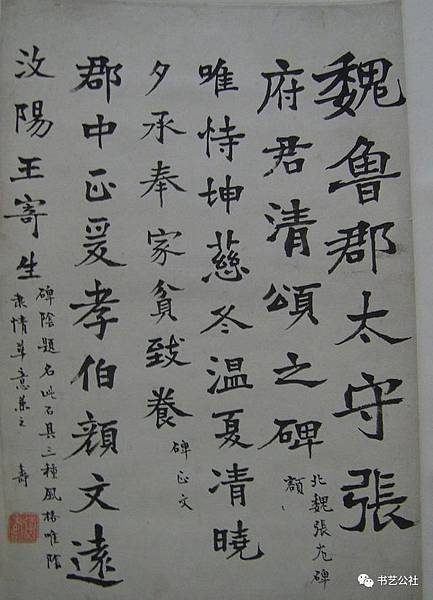 魏魯郡太守張
府君清頌之碑
北魏張碑
額
唯恃坤慈冬温夏清曉
夕承奉家貧致養
碑正文
郡中正爰孝伯顔文遠
汶陽王寄生
碑陰題名此石具三種風格唯陰
情草意兼之 壽
书艺公社